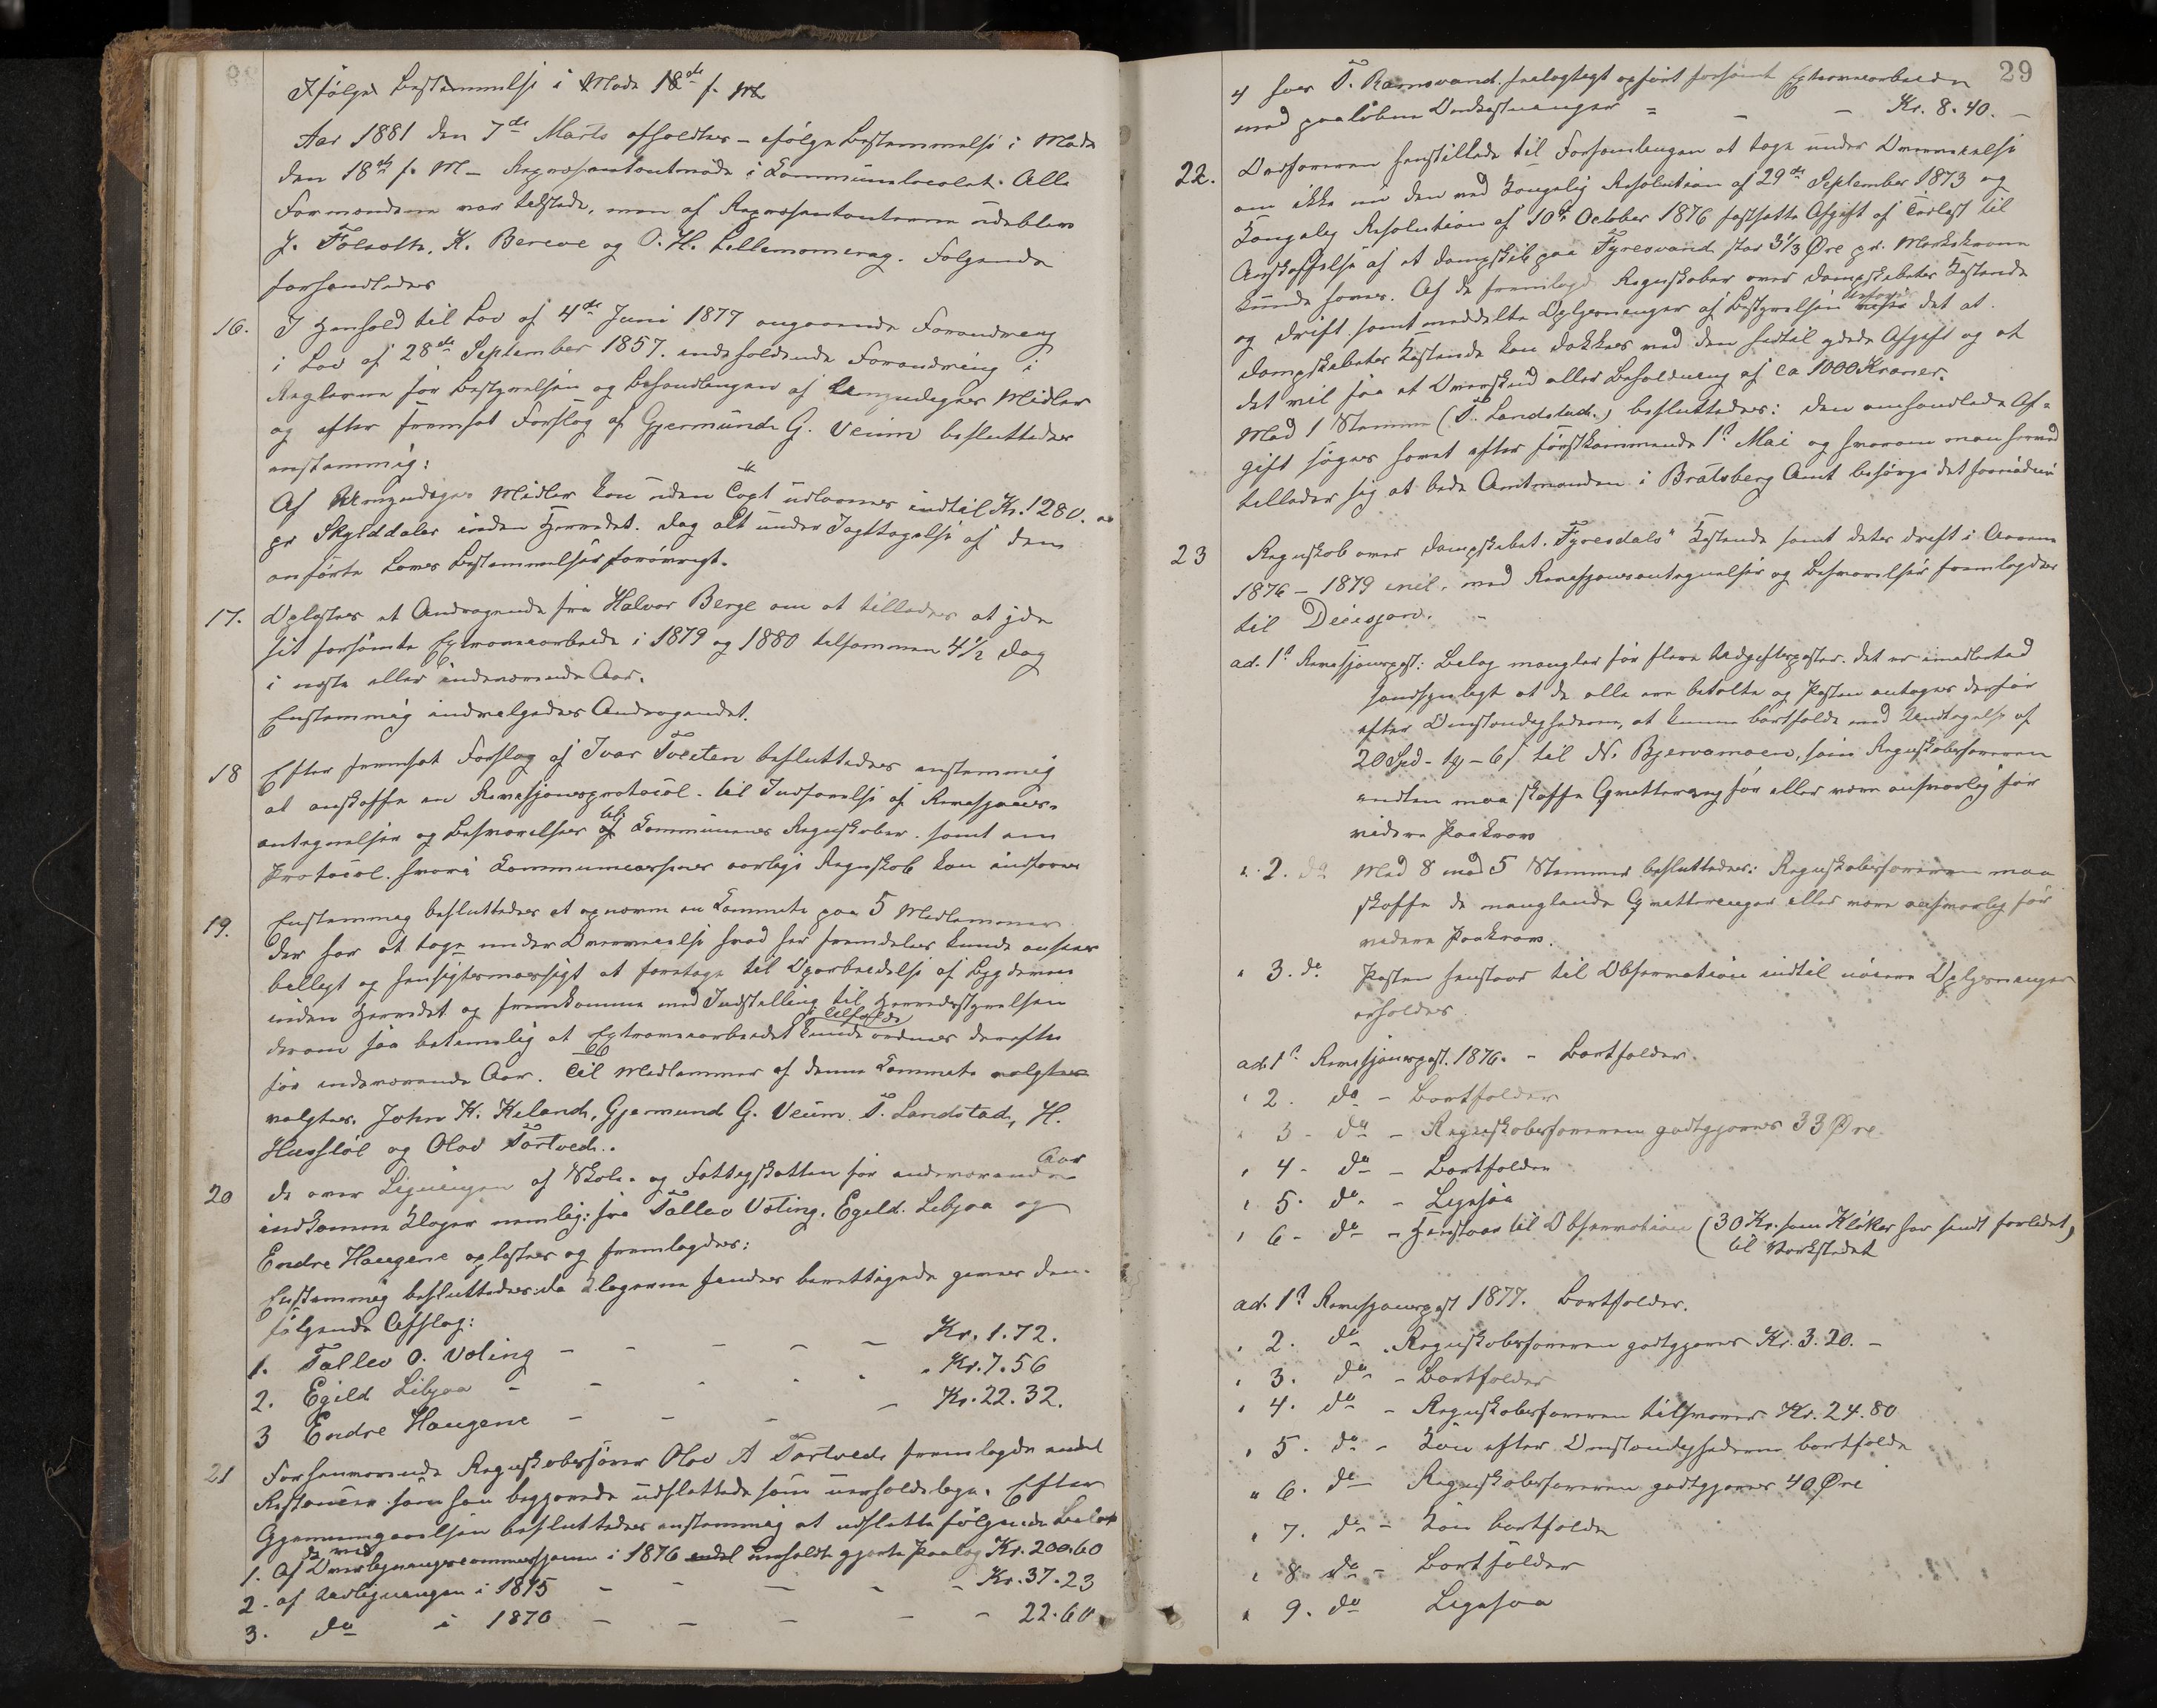 Ifølge Bestemmelse i Møde 18de f. M.
Aar 1881 den 7de Marts afholdtes – ifølge Bestemmelse i Møde
den 18de f. M – Repræsentantmøde i Kommunelocalet. Alle
Formændene var tilstede, men af Repræsentanterne udeblev
J. Folsotte, K. Bereve og O. H. Lillemomerag. Følgende
forhandledes
16. I Henhold til Lov af 4de Juni 1877 angaaende Forandring
i Lov af 28de September 1857. indeholdende Forandring i
Reglerne for Bestyrelsen og Behandlingen af Umyndiges Midler
og efter fremsat Forslag af Gjermund G. Veum besluttedes
enstemmig:
Af Umyndiges Midler kan uden Taxt udlaanes indtil Kr. 1280.
pr Skylddaler inden Herredet. dog alt under Iagttagelse af den
anførte Lovs Bestemmelser forøvrigt.
17. Oplæstes et Andragende fra Halvor Berge om at tillades at yde
sit forsømte Extraveiarbeide i 1879 og 1880 tilsammen 4½ Dag
i næste eller indeværende Aar.
Enstemmig indvilgedes Andragendet.
18 Efter fremsat Forslag af Ivar Tveiten besluttedes enstemmig
at anskaffe en Revisjonsprotocol til Indførelse af Revisjons-
antegnelser og Besvarelser af Kommunens Regnskaber. samt en
Protocol. hvori Kommunecassernes aarlige Regnskab kan indføres
19. Enstemmig besluttedes at opnævne en Kommite paa 5 Medlemmer
der har at tage under Overveielse hvad her fremdeles kunde ansees
billigt og hensigtsmæssigt at foretage til Oparbeidelse af Bygdeveie
inden Herredet og fremkomme med Indstilling til Herredsstyrelsen
i Tilfælde
derom saa betimelig at Extraveiarbeidet kunde ordnes derefter
for indeværende Aar. Til Medlemmer af denne Kommite valgtes
valgtes. John K. Kiland, Gjermund G. Veum. T. Landstad, H.
Huusstøl og Olav Tortved..
20 De over Ligningen af Skole- og Fattigskatten for indeværende Aar
indkomne Klager nemlig: fra Tallev Voting. Egild. Libjaa og
Endre Haugene oplæstes og fremlagdes:
Enstemmig besluttedes: da Klagerne findes berettigede gives dem
følgende Afslag:
1. Tallev O. Voting – – – – – Kr. 1.72.
2. Egild Libjaa – – – – – Kr. 7.56
3 Endre Haugene – – – – Kr. 22.32.
21 Forhenværende Regnskabsfører Olav A Tortved fremlagde endel
Restancer som han begjærede udslettede som uerholdelige. Efter
Gjennemgaaelsen besluttedes enstemmig at udslette følgende Beløb
1. Af de ved Overligningscommissjonen i 1876 endel Kr. 200.60
2. af Udligningen i 1875 – – – – – Kr. 37.23
3. do i 1870 – – – – – 22.60.
29
4 hver T. Ramsvand. feilagtigt opført forsømt Extraveiarbeide
med paaløbne Omkostninger = – – Kr. 8.40. –
22. Ordføreren henstillede til Forsamlingen at tage under Overveielse
om ikke nu den ved Kongelig Resolution af 29de September 1873 og
Kongelig Resolution af 10de October 1876 fastsatte Afgift af Tørlast til
Anskaffelse af et Dampskib paa Fyresvand stor 3⅓ Øre pr. Markskrone
kunde hæves. Af de fremlagte Regnskaber over Dampskibets Kostende
og Drift samt meddelte Oplysninger af Bestyrelsen det at
Dampskibets Kostende kan dækkes med den hidtil ydede Afgift og at
det vil faa et Overskud eller Beholdning af ca 1000 Kroner.
Mod 1 Stemme (T. Landstad.) besluttedes: Den omhandlede Af-
gift søges hævet efter førstkommende 1ste Mai og hvorom man herved
tillader sig at bede Amtmanden i Bratsberg Amt besørge det fornødne
23 Regnskab over Dampskibet „Fyresdals“ Kostende samt dets Drift i Aarene
1876 – 1879 incl. med Revisjonsantegnelser og Besvarelser fremlagdes
til Decisjon. –
ad. 1ste Revisjonspost: Bilag mangler for flere Udgiftsposter. Det er imidlertid
sandsynligt at de alle ere betalte og Posten antages derfor
efter Omstændighederne, at kunne bortfalde med Undtagelse af
20 Spd – 1 – 6 til N. Bjervamoen, som Regnskabsføreren
enten maa skaffe Qvittering for eller være ansvarlig for
videre Paakrav
„ 2. do Med 8 mod 5 Stemmer besluttedes: Regnskabsføreren maa
skaffe de manglende Qvitteringer eller være ansvarlig for
videre Paakrav.
„ 3. do Posten henstaar til Observation indtil nøiere Oplysninger
erholdes
ad. 1ste Revisjonspost. 1876. – Bortfalder.
„ 2. do – Bortfalder
„ 3 – do – Regnskabsføreren godtgjøres 33 Øre
„ 4 – do – Bortfalder
„ 5. do – Ligesaa
„ 6 – do – Henstaar til Observation (30 Kr. som Kliker har sendt forlidet)
til Værkstedet
ad. 1ste Revisjonspost 1877. Bortfalder.
„ 2. do „ Regnskabsføreren godtgjøres Kr. 3.20. –
„ 3. do – Bortfalder
„ 4. do – Regnskabsføreren tilsvarer Kr. 24.80
„ 5. do – Kan efter Omstændighederne bortfalde
„ 6. do – Regnskabsføreren godtgjøres 40 Øre
„ 7. do – Kan bortfalde
„ 8 do – Bortfalder
„ 9. do Ligesaa